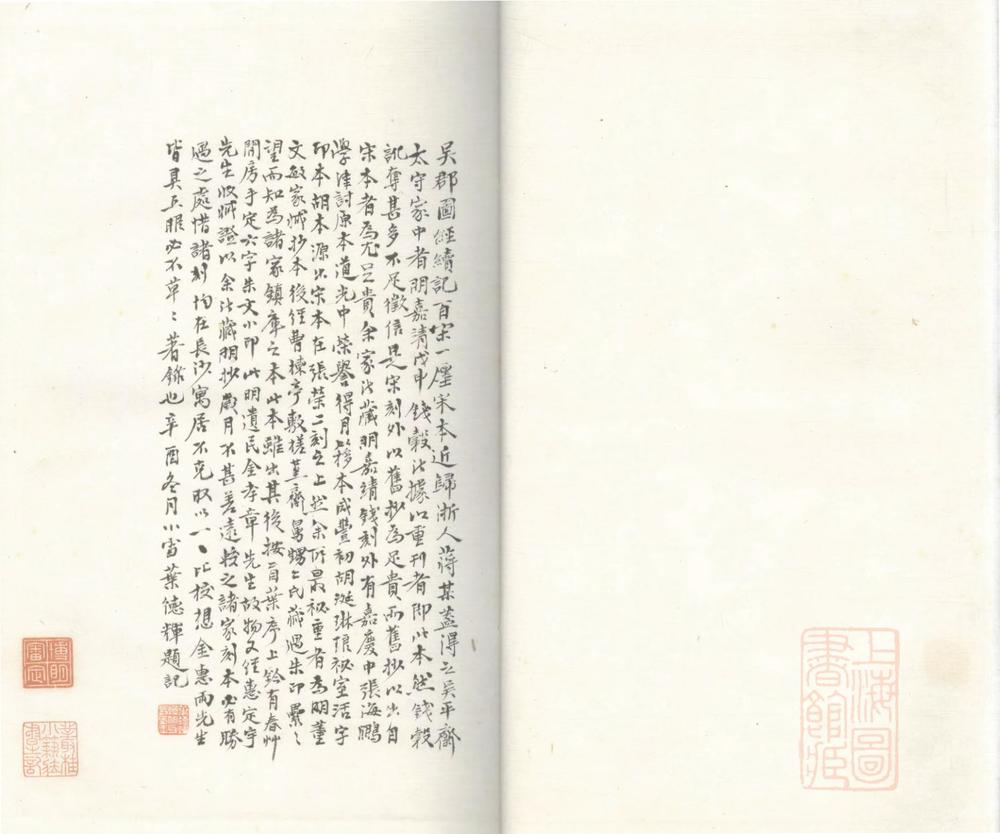 吳郡圖經續記百宋一廛宋本近歸浙人蔣某蓋得之吳平齋
太守家中者明嘉清戊申錢穀所據以重刊者即此本然錢穀
訛奪甚多不足徵信是宋刻外以舊抄為足貴而舊抄以出自
宋本者為尤足貴余家所藏明嘉靖錢刻外有嘉慶中張海鵬
學津討原本道光中榮譽得月簃本咸豐初胡珽琳琅祕室活字
印本胡本源出宋本在張榮二刻之上然余所最祕重者為明董
文敏家藏抄本後經曹楝亭敷槎堇齋舅甥二氏藏過朱印纍〻
望而知為諸家鎮庫之本此本雖出其後按首葉序上鈐有春艸
閒房手定六字朱文小印此明遺民金孝章先生故物又經惠定宇
先生收藏證以余所藏明抄歲月不甚差遠校之諸家刻本必有勝
過之處惜諸刻均在長沙寓居不克取以一〻比校想金惠兩先生
皆具五眼必不草〻著錄也辛酉冬月小雪葉德輝題記
博明審定
上海圖書館藏